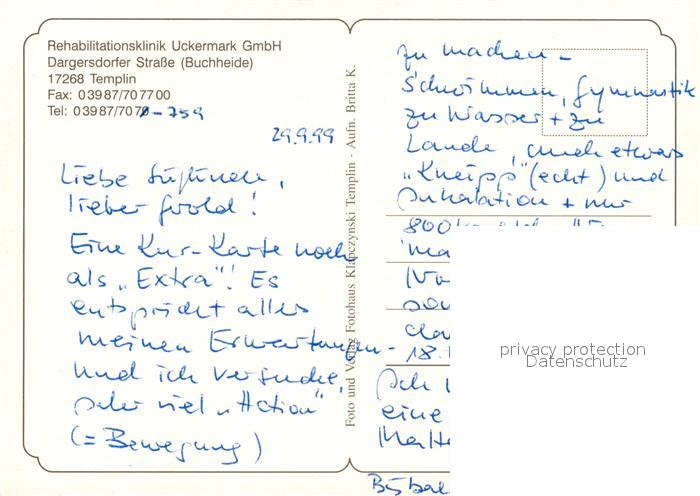 Rehabilitationsklinik Uckermark GmbH
Dargersdorfer Straße (Buchheide)
17268 Templin
Fax: 0 39 87/70 77 00
Tel: 0 39 87/70 79-759
29.9.99
Liebe
lieber
Eine Kur-Karte noch
als „Extra“! Es
entspricht alles
meinen Erwartungen -
und ich versuche,
sehr viel „Action“
(= Bewegung)
Foto und Verlag Fotohaus Klapczynski Templin · Aufn. Britta K.
zu machen -
Schwimmen, Gymnastik
zu Wasser + zu
Lande, auch etwas
„Kneipp“ (echt) und
Inhalation + nur
800
18.
Ich
eine
privacy protection
Datenschutz